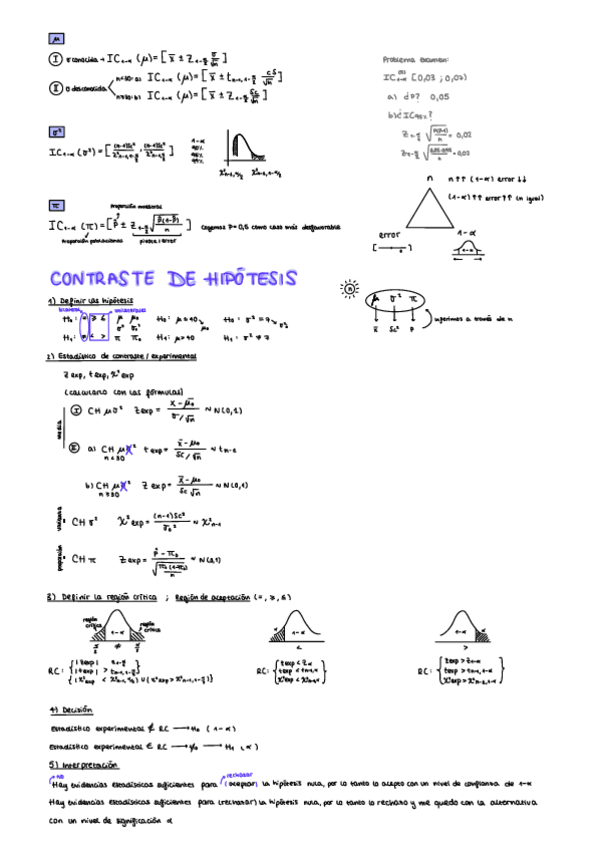 μ
I σ conocida → IC1-α (μ) = [ x̄ ± Z1-α/2 σ/√n ]
II σ desconocida
n<30: a) IC1-α (μ) = [ x̄ ± tn-1, 1-α/2 cS/√n ]
n≥30: b) IC1-α (μ) = [ x̄ ± Z1-α/2 Sc/√n ]
Problema examen:
IC1-α [0,03 ; 0,07]
a) ¿p? 0,05
Z1-α/2 √ = 0,02
σ²
IC1-α (σ²) =
1-α
π
proporción muestral
IC1-α (π) = [ p̂ ± Z1-α/2 √ p̂(1-p̂)/n ] cogemos P=0,5 como caso más desfavorable
proporción poblacional
error
n
n↑↑ (1-α) error ↓↓
(1-α)↑↑ error↑↑ (n igual)
error 1-α
CONTRASTE DE HIPÓTESIS
1) Definir las hipótesis
bilateral unilaterales
H0: = ≥ ≤ μ μ0 H0: μ=40 H0: σ²=7
H1: ≠ < > π π0 H1: μ>40 H1: σ²≠7
n
μ σ² π
x̄ Sc² p̂
inferimos a través de n
2) Estadístico de contraste / experimental
Z exp, t exp, χ² exp
(calcularlo con las fórmulas)
media
I CH μσ² Z exp = x̄ - μ0 / σ/√n ≈ N(0,1)
II a) CH μσ² t exp = x̄ - μ0 / Sc/√n ≈ tn-1
n<30
b) CH μσ² Z exp = x̄ - μ0 / Sc √n ≈ N(0,1)
n≥30
varianza
CH σ² χ² exp = (n-1)Sc² / σ0² ≈ χ²n-1
proporción
CH π Z exp = p̂ - π0 / √ π0(1-π0)/n ≈ N(0,1)
3) Definir la región crítica ; Región de aceptación (=, ≥, ≤)
región crítica 1-α región crítica
α/2 ≠ α/2
α 1-α
<
1-α α
>
RC: { |Zexp| > Z1-α/2
|texp| > tn-1, 1-α/2
(χ²exp < χ²n-1, α/2) ∪ (χ²exp > χ²n-1, 1-α/2) }
RC: { Zexp < Zα
texp < tn-1, α
χ²exp < χ²n-1, α }
RC: { Zexp > Z1-α
texp > tn-1, 1-α
χ²exp > χ²n-1, 1-α }
4) Decisión
Estadístico experimental ∉ RC → H0 (1-α)
Estadístico experimental ∈ RC → H̸0 → H1 (α)
5) Interpretación
no rechazar
Hay evidencias estadísticas suficientes para (aceptar) la hipótesis nula, por lo tanto la acepto con un nivel de confianza de 1-α
Hay evidencias estadísticas suficientes para (rechazar) la hipótesis nula, por lo tanto la rechazo y me quedo con la alternativa
con un nivel de significación α